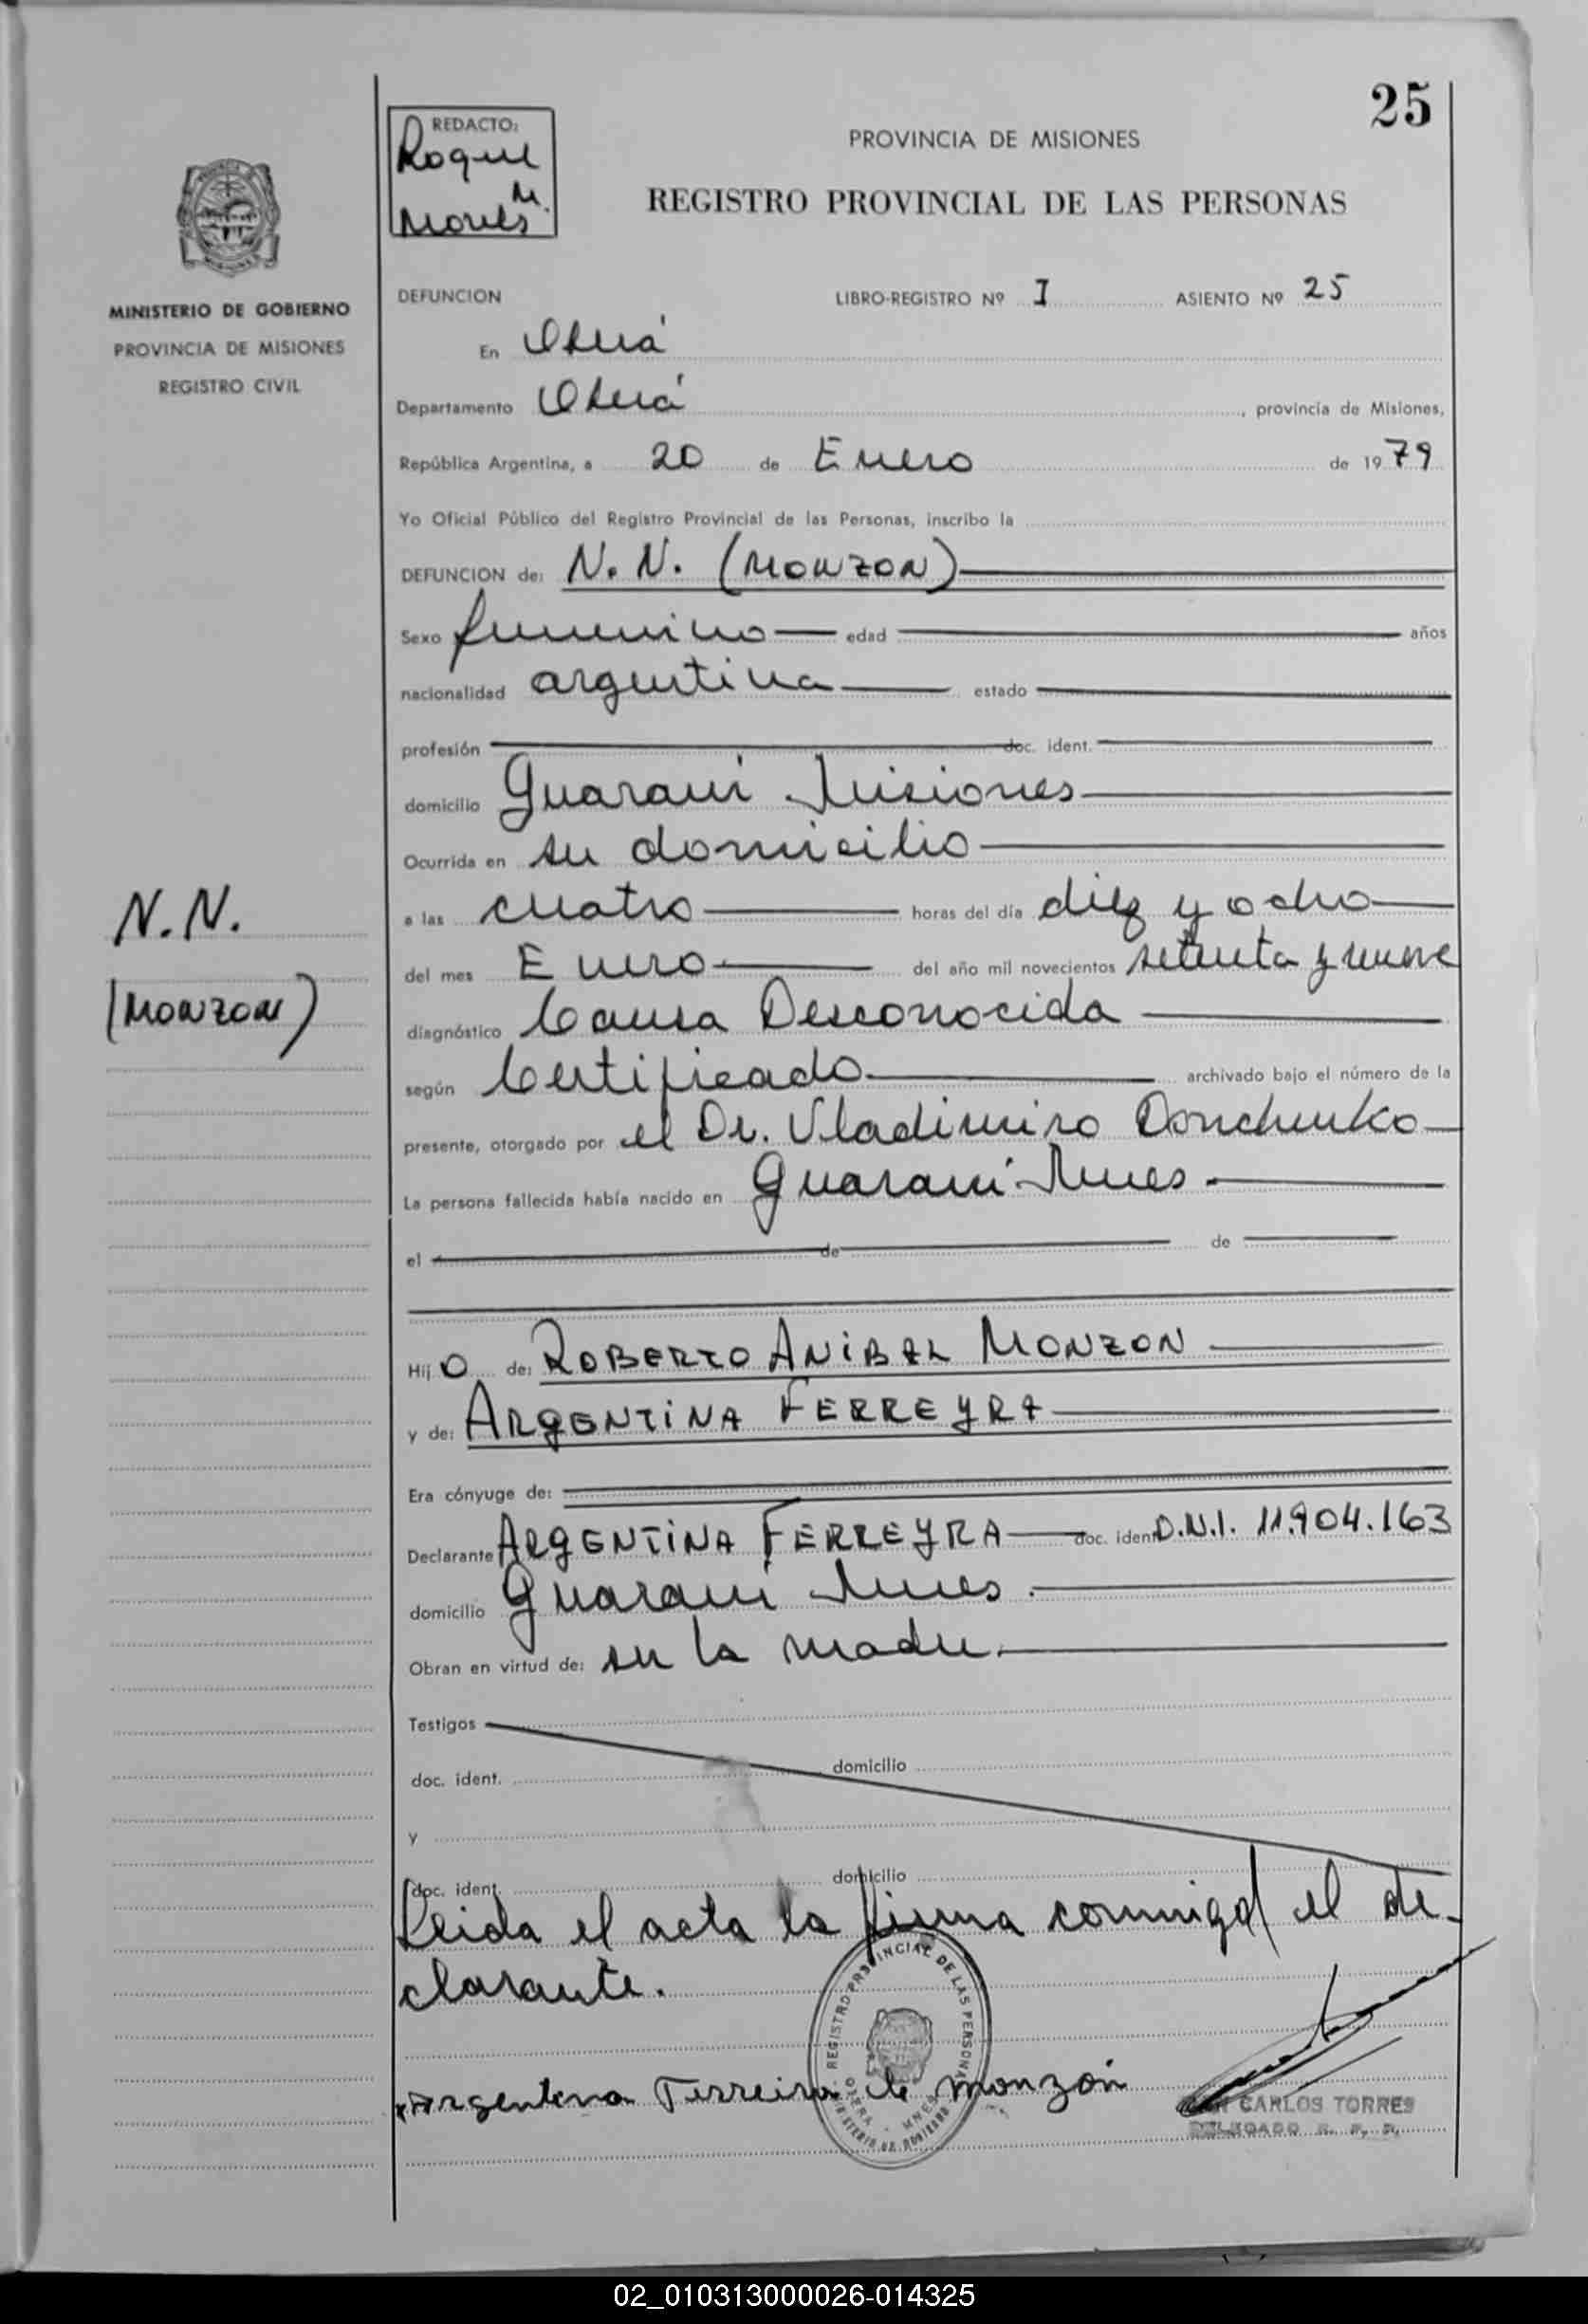 25
REDACTO:
Roque
M.
Mores
PROVINCIA DE MISIONES
REGISTRO PROVINCIAL DE LAS PERSONAS
MINISTERIO DE GOBIERNO
PROVINCIA DE MISIONES
REGISTRO CIVIL
DEFUNCION LIBRO-REGISTRO Nº I ASIENTO Nº 25
En Oberá
Departamento Oberá, provincia de Misiones,
República Argentina, a 20 de Enero de 1979
Yo Oficial Público del Registro Provincial de las Personas, inscribo la
DEFUNCION de: N. N. (MONZON)
Sexo femenino edad años
nacionalidad argentina estado
profesión doc. ident.
domicilio Guaraní Misiones
Ocurrida en su domicilio
N.N.
a las cuatro horas del día diez y ocho
del mes Enero del año mil novecientos setenta y nueve
(MONZON)
diagnóstico Causa Desconocida
según Certificado archivado bajo el número de la
presente, otorgado por el Dr. Vladimiro Donchenko
La persona fallecida había nacido en Guaraní Mnes
el de de
Hij o de: ROBERTO ANIBAL MONZON
y de: ARGENTINA FERREYRA
Era cónyuge de:
Declarante ARGENTINA FERREYRA doc. ident D.N.I. 11.904.163
domicilio Guaraní Mnes
Obran en virtud de: ser la madre
Testigos
doc. ident. domicilio
y
doc. ident. domicilio
Leida el acta la firma conmigo el de-
clarante.
REGISTRO PROVINCIAL DE LAS PERSONAS
Argentina Ferreira de monzón
CARLOS TORRES
DELEGADO R. P. P.
02_010313000026-014325